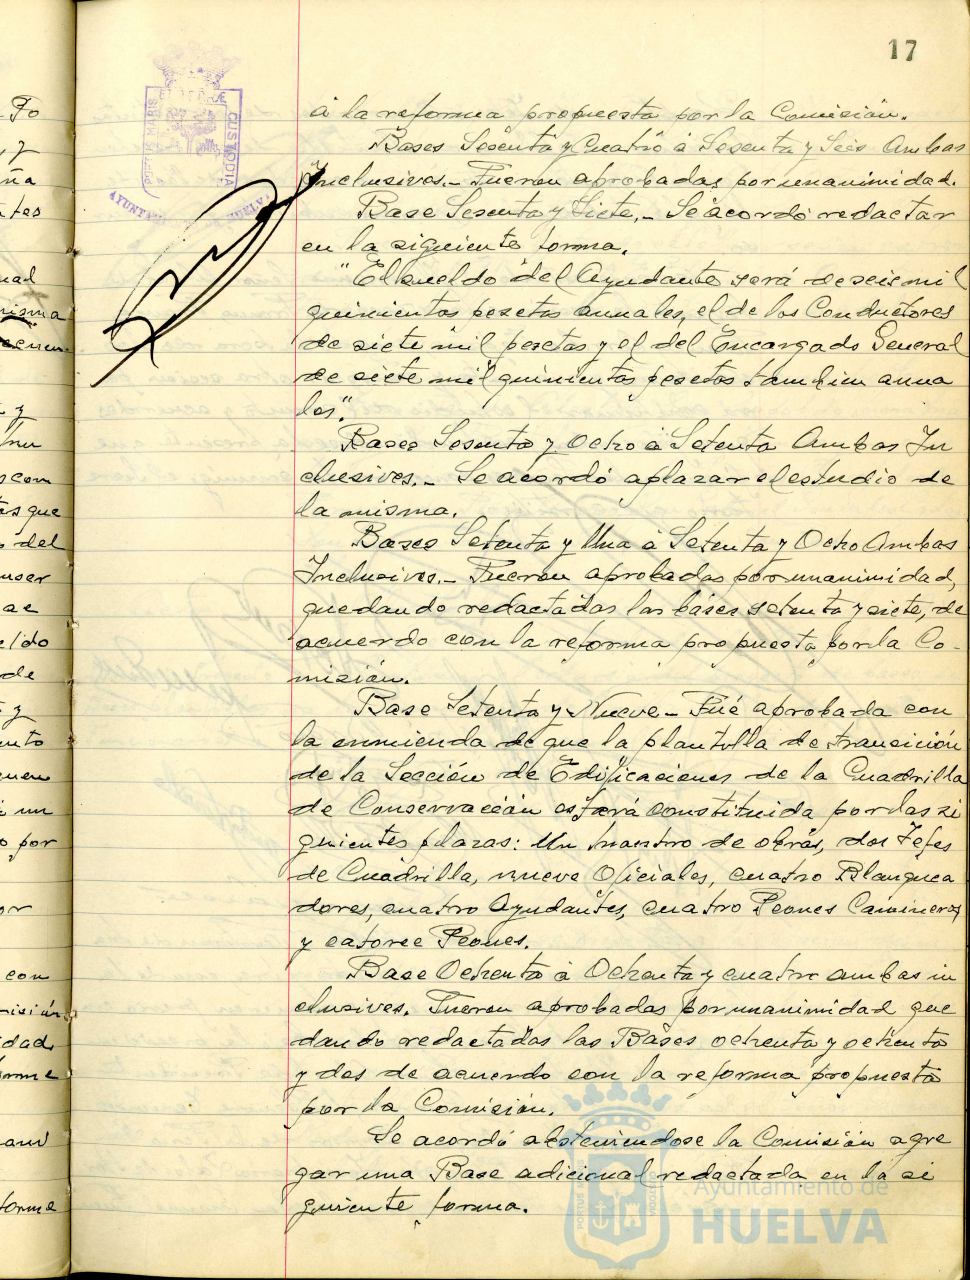 17
á la reforma propuesta por la Comisión.
Bases Sesenta y Cuatro á Sesenta y Seis Ambas
Inclusives.- Fueron aprobadas por unanimidad.
Base Sesenta y Siete.- Se acordó redactar
en la siguiente forma.
"El sueldo del Ayudante será de seis mil
quinientas pesetas anuales, el de los Conductores
de siete mil pesetas y el del Encargado General
de siete mil quinientas pesetas tambien anua
les".
Bases Sesenta y Ocho á Setenta Ambas In
clusives.- Se acordó aplazar el estudio de
la misma.
Bases Setenta y Una á Setenta y Ocho Ambas
Inclusives.- Fueron aprobadas por unanimidad,
quedando redactadas las bases setenta y siete, de
acuerdo con la reforma propuesta por la Co-
misión.
Base Setenta y Nueve- Fué aprobada con
la enmienda de que la plantilla de transición
de la Sección de Edificaciones de la Cuadrilla
de Conservación estará constituida por las si
guientes plazas: Un maestro de obras, dos Jefes
de Cuadrilla, nueve Oficiales, cuatro Blanquea
dores, cuatro Ayudantes, cuatro Peones Camineros
y catorce Peones.
Base Ochenta á Ochenta y cuatro ambas in
clusives. Fueron aprobadas por unanimidad que
dando redactadas las Bases ochenta y ochenta
y dos de acuerdo con la reforma propuesta
por la Comisión.
Se acordó absteniendose la Comisión agre
gar una Base adicional redactada en la si
guiente forma.
PORTUS MARIS
ET TERRE
CUSTODIA
HUELVA
Ayuntamiento de
HUELVA